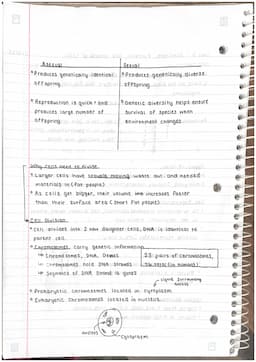 Asexual
Sexual
• Produces genetically identical
offspring
• Produces genetically diverse
offspring
• Reproduction is quick and
produces large number of
offspring
• Genetic diversity helps ensure
survival of species when
environment changes
Why cells need to divide
• Larger cells have trouble moving waste out and needed
materials in (fat people)
• As cells get bigger, their volume increases faster
than their surface area (short fat people)
Cell Division
• Cell divides into 2 new daughter cells, DNA is identical to
parent cell
• Chromosomes carry genetic information
→ Chromosomes, DNA, Genes
→ Chromosomes hold DNA
→ Segments of DNA
23 pairs of chromosomes,
46 total (in humans)
• Prokaryotic chromosomes located in cytoplasm
• Eukaryotic chromosomes located in nucleus
nucleus
cytoplasm